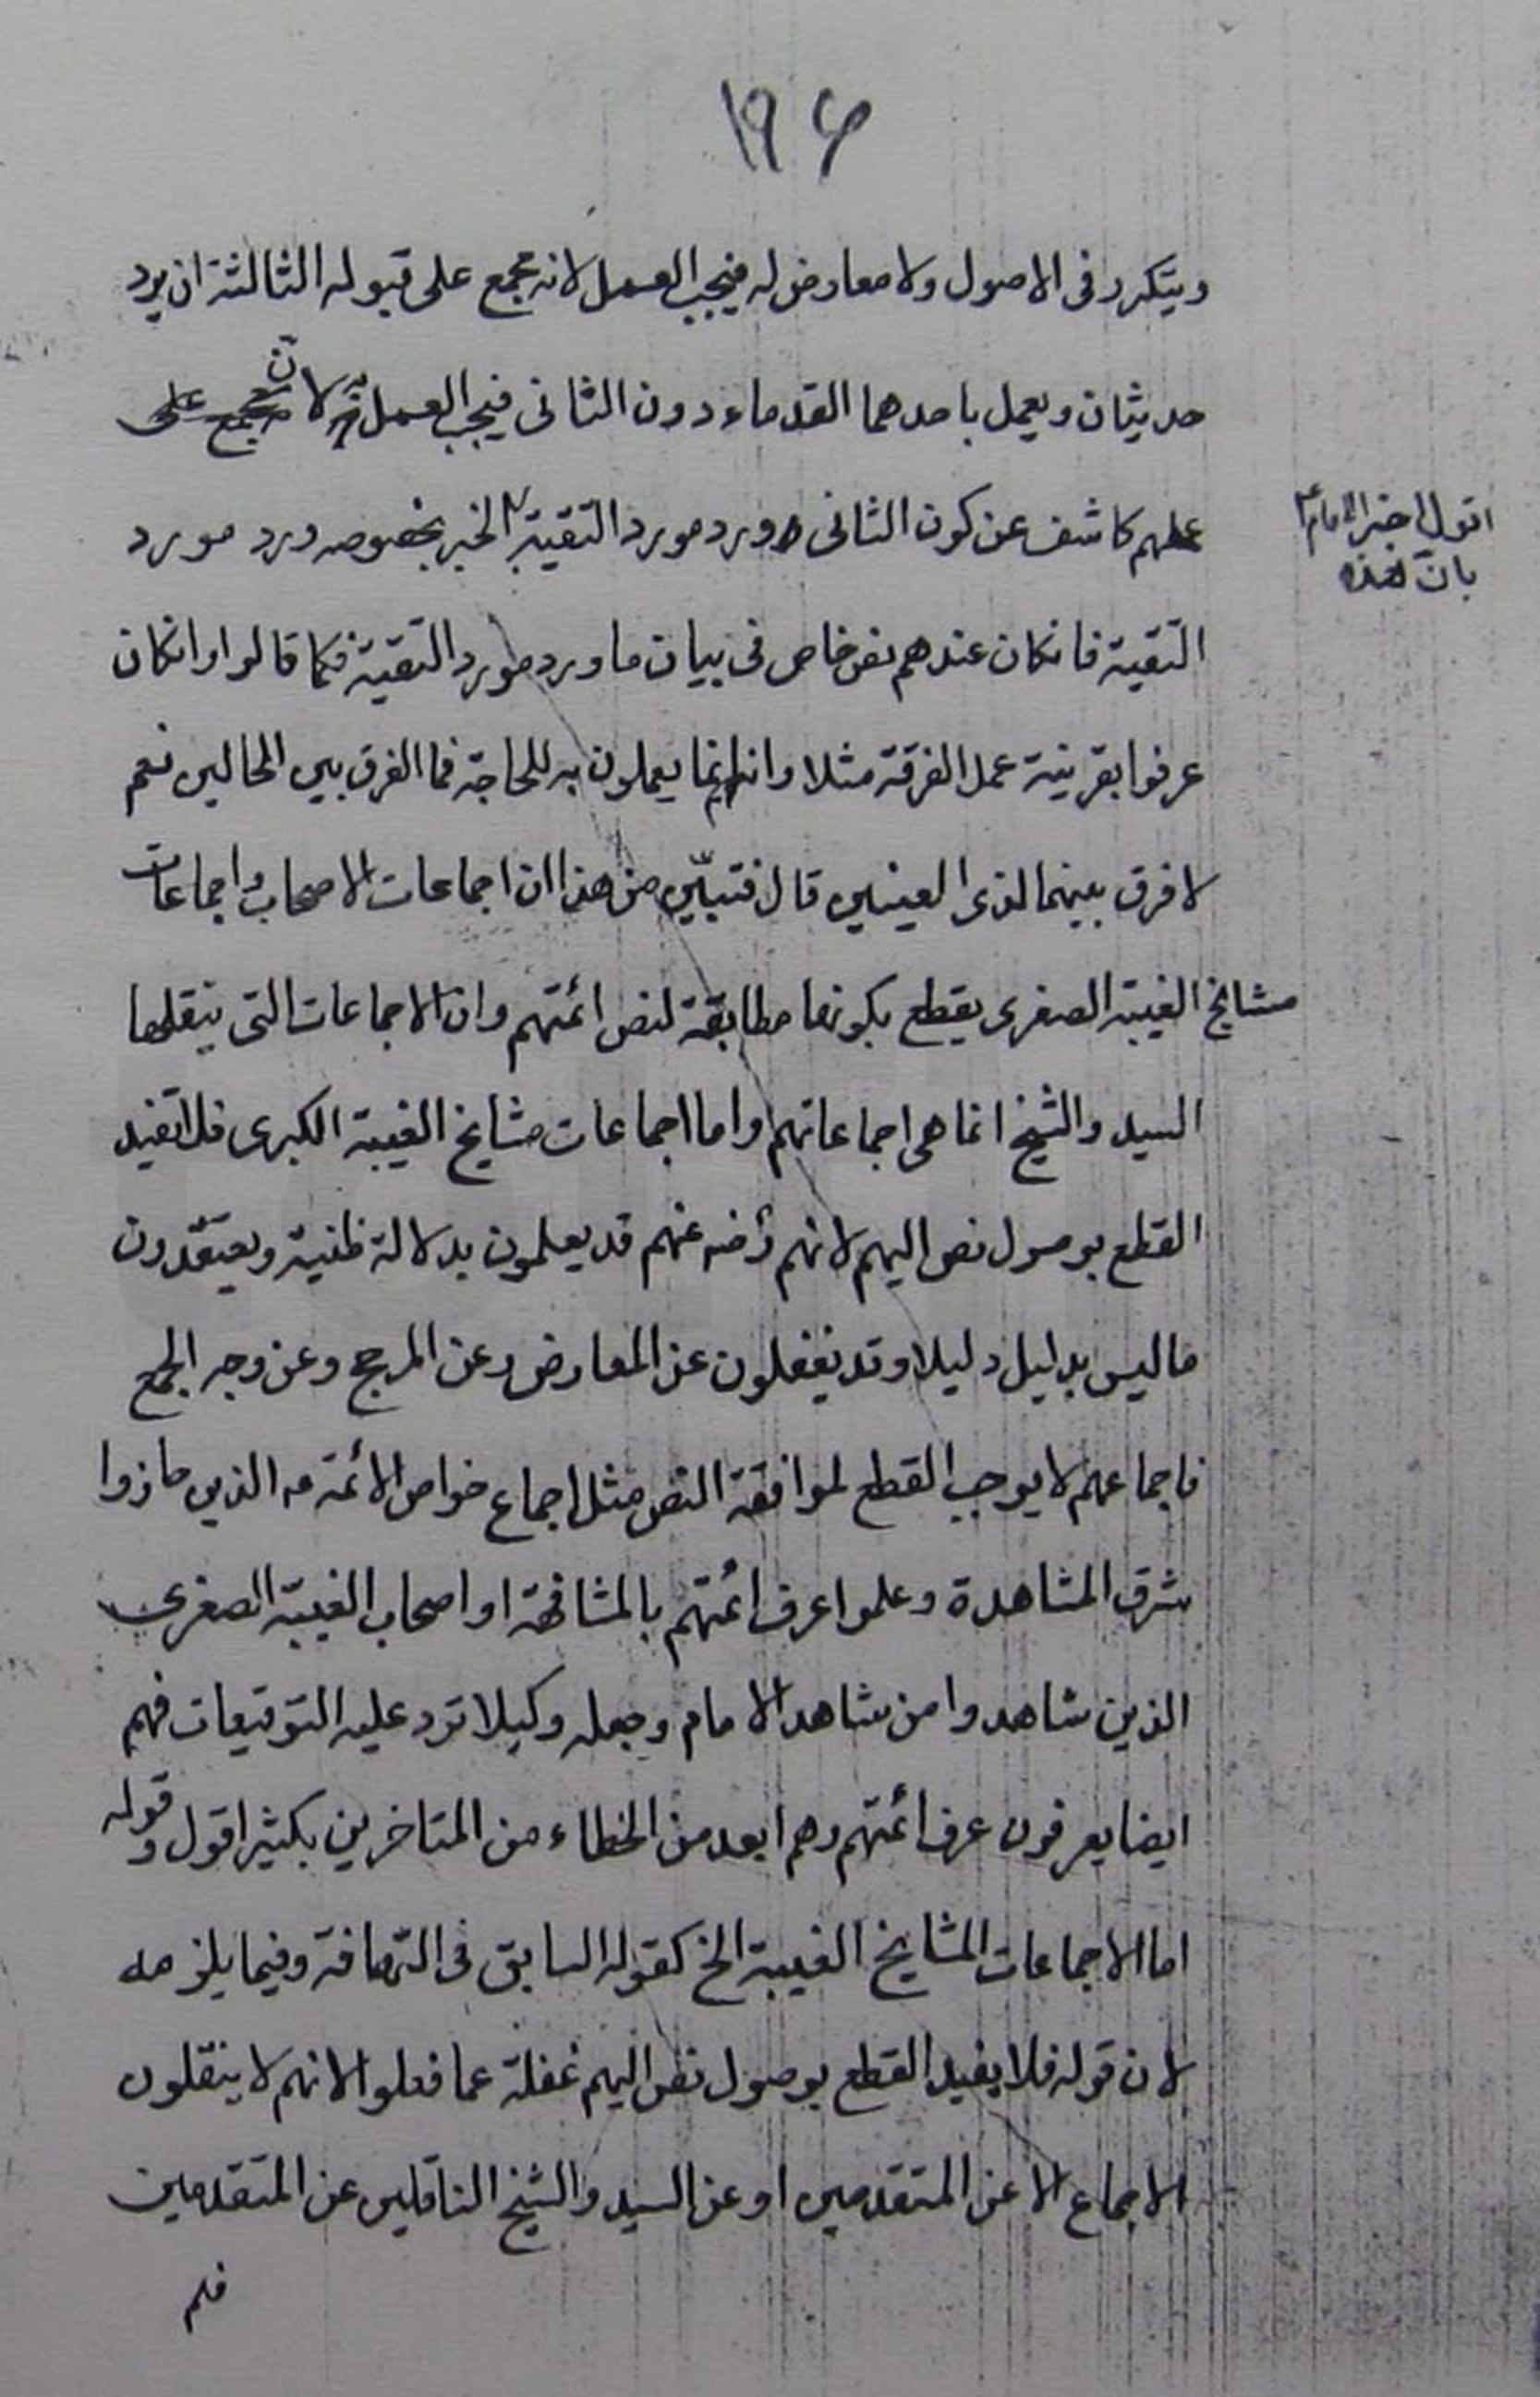 ١٩۶
ويتكرر فى الاصول ولا معارض له فيجب العمل لانه مجمع على قبوله الثالثة ان يرد
حديثان ويعمل باحدهما القدماء دون الثانى فيجب العمل به لان مجمع على
عملهم كاشف عن كون الثانى ورد مورد التقية الخبر بخصوصه ورد مورد
اقول اخبر الامام
بانّ هذه
التقية فانكان عندهم نص خاص فى بيان ما ورد مورد التقية فكما قالوا وانكان
عرفوا بقرينة عمل الفرقة مثلا وانهم انما يعملون به للحاجة فما الفرق بين الحالين نعم
لا فرق بينهما لذى العينين قال فتبيّن من هذا ان اجماعات الاصحاب واجماعات
مشايخ الغيبة الصغرى يقطع بكونها مطابقة لنص ائمتهم وان الاجماعات التى ينقلها
السيد والشيخ انما هى اجماعاتهم واما اجماعات مشايخ الغيبة الكبرى فلا تفيد
القطع بوصول نص اليهم لانهم رضه عنهم قد يعلمون بدلالة ظنية ويعتقدون
ما ليس بدليل دليلا وقد يغفلون عن المعارض وعن المرجح وعن وجه الجمع
فاجماعهم لا يوجب القطع لموافقة النص مثل اجماع خواص الائمة مه الذين حازوا
شرف المشاهدة وعلموا عرف ائمتهم بالمشافهة او اصحاب الغيبة الصغرى
الذين شاهدوا من شاهد الامام وجعله وكيلا ترد عليه التوقيعات فهم
ايضا يعرفون عرف ائمتهم وهم ابعد من الخطاء من المتاخرين بكثير اقول وقوله
اما الاجماعات المشايخ الغيبة الخ كقوله السابق فى التهافة وفيما يلزمه
لان قوله فلا يفيد القطع بوصول نص اليهم غفلة عما فعلوا لانهم لا ينقلون
الاجماع الا عن المتقدمين او عن السيد والشيخ الناقلين عن المتقدمين
فلم